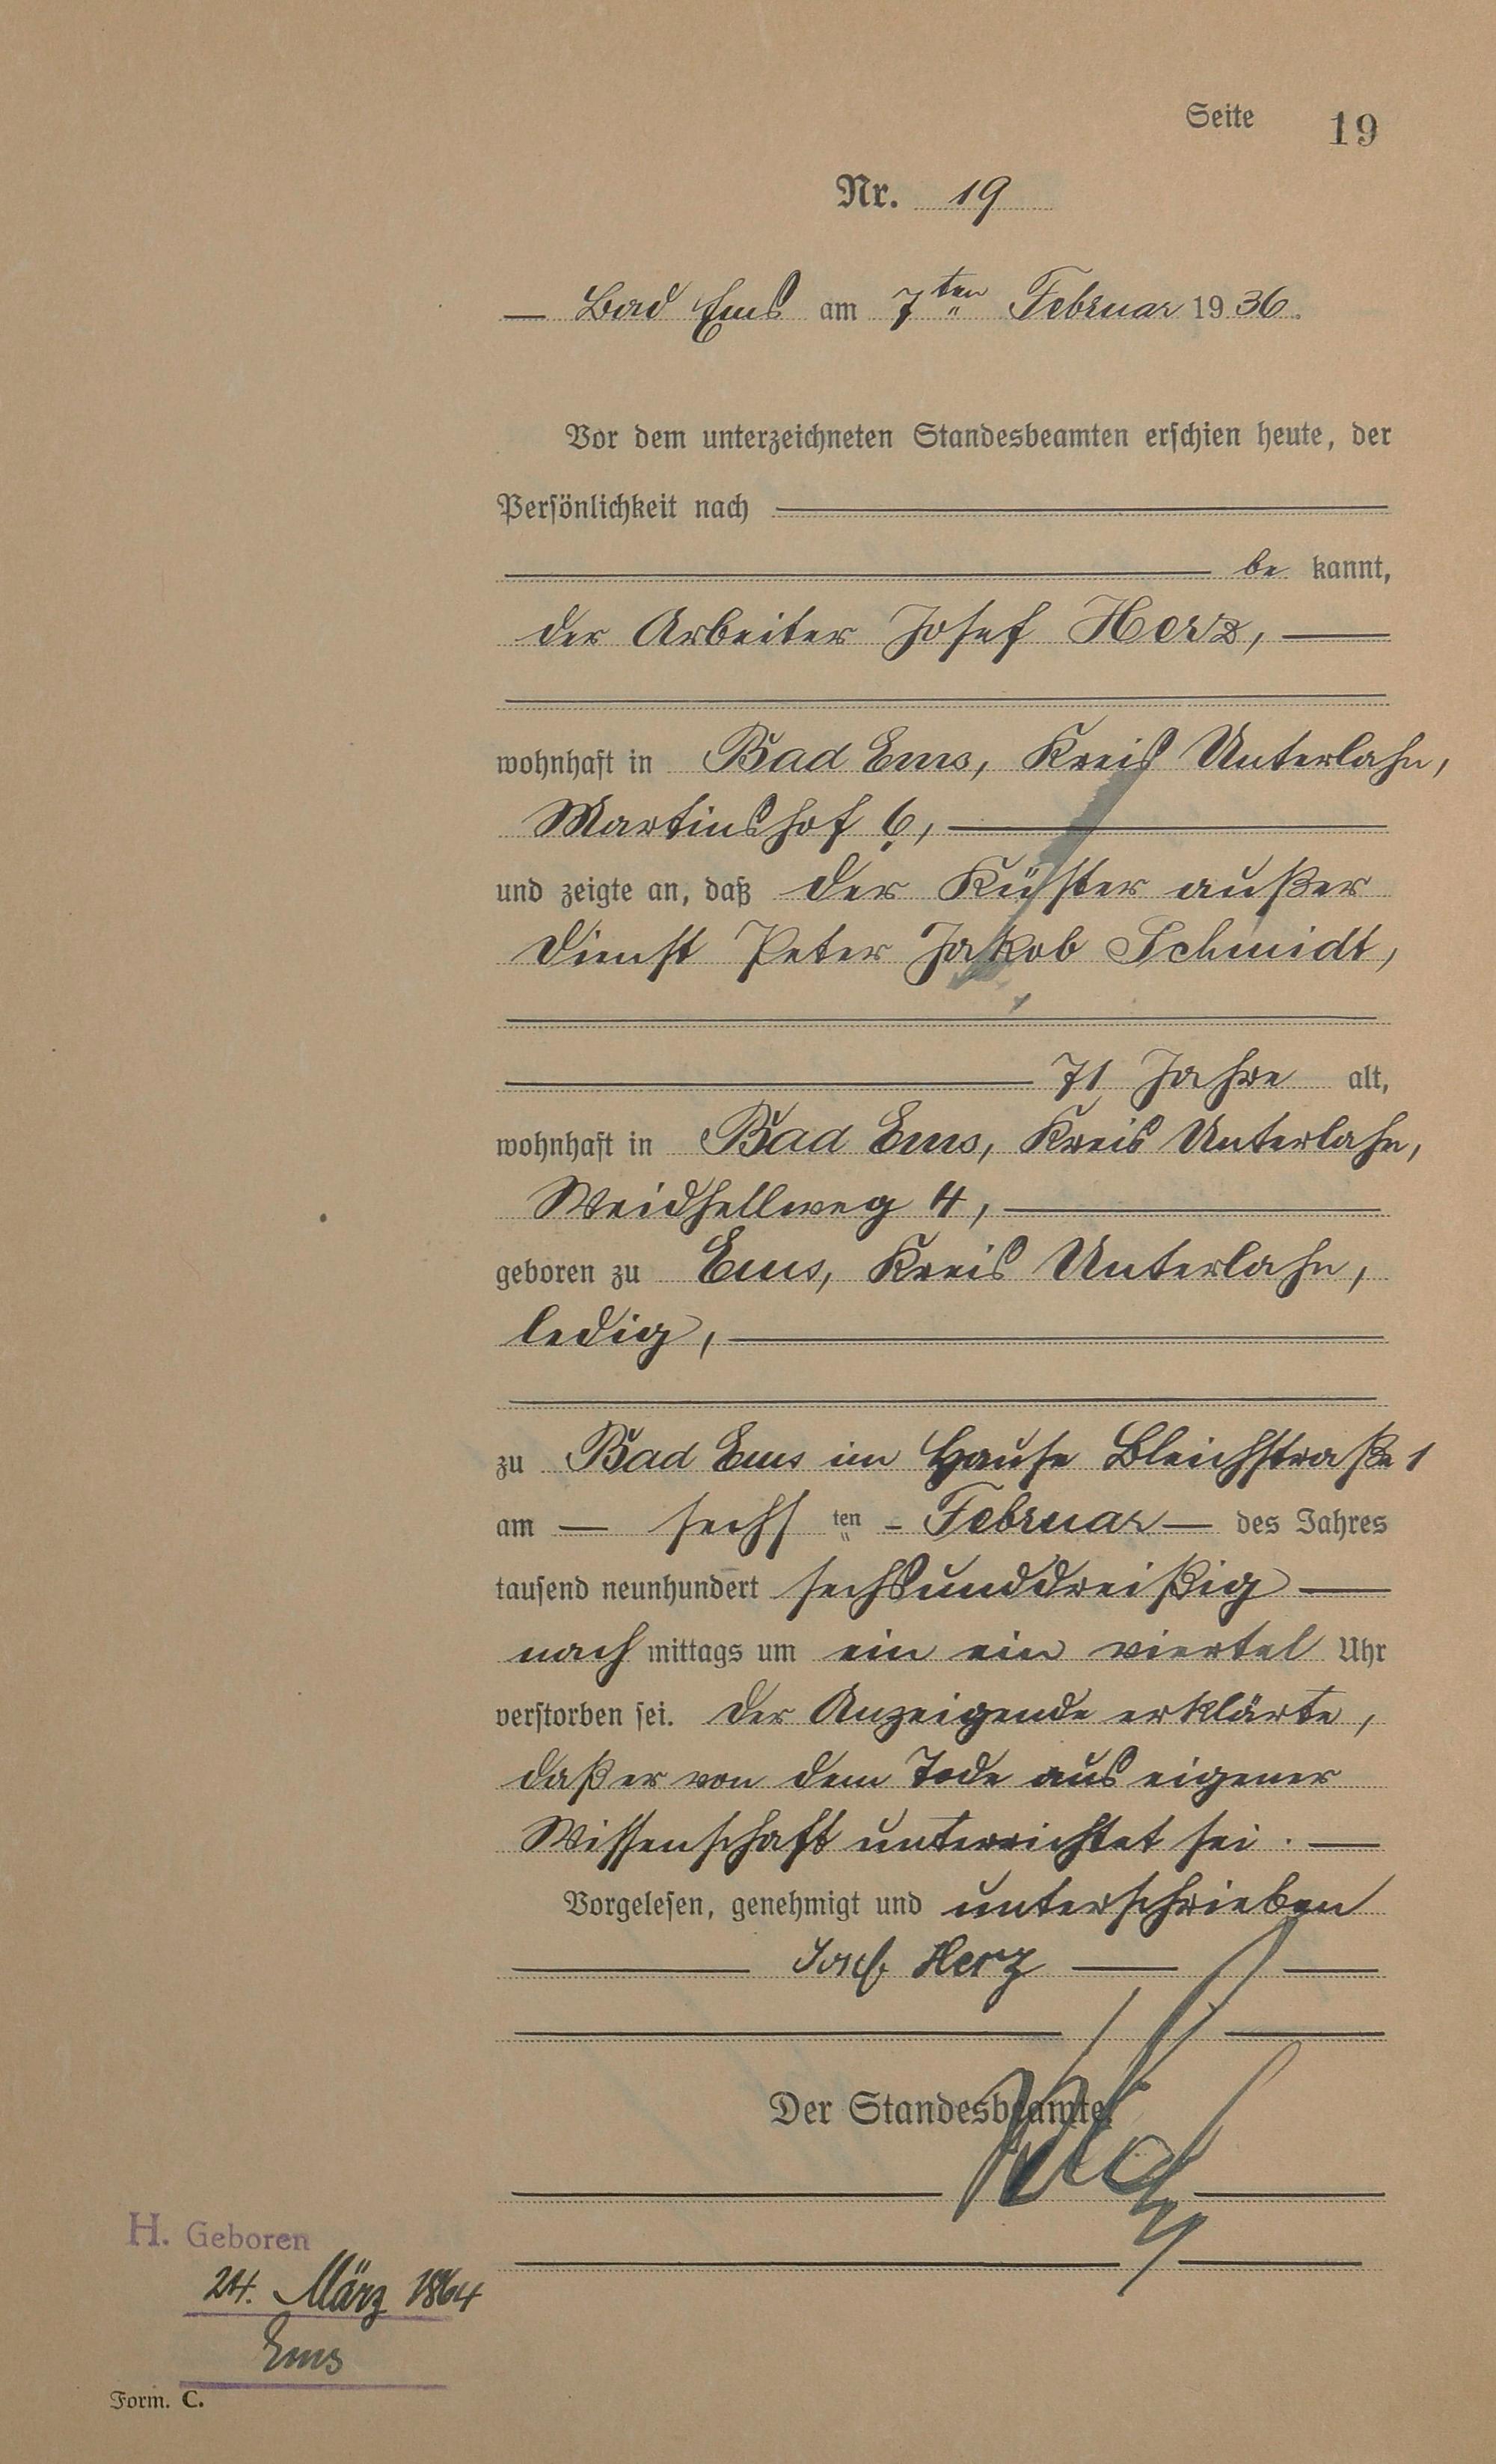 Seite 19
Nr. 19
Bad Ems am 7ten Februar 1936.
Vor dem unterzeichneten Standesbeamten erschien heute, der
Persönlichkeit nach
be kannt,
der Arbeiter Josef Herz,
wohnhaft in Bad Ems, Kreis Unterlahn,
Martinshof 6,
und zeigte an, daß der Küster außer
Dienst Peter Jakob Schmidt,
71 Jahre alt,
wohnhaft in Bad Ems, Kreis Unterlahn,
Weidhellweg 4,
geboren zu Ems, Kreis Unterlahn,
ledig,
zu Bad Ems im Hause Bleichstraße 1
am sechsten Februar des Jahres
tausend neunhundert sechsunddreißig
nach mittags um ein ein viertel Uhr
verstorben sei. Der Anzeigende erklärte,
daß er von dem Tode aus eigener
Wissenschaft unterrichtet sei.
Vorgelesen, genehmigt und unterschrieben
Josef Herz
Der Standesbeamte.
H. Geboren
24. März 1864
Ems
Form. C.